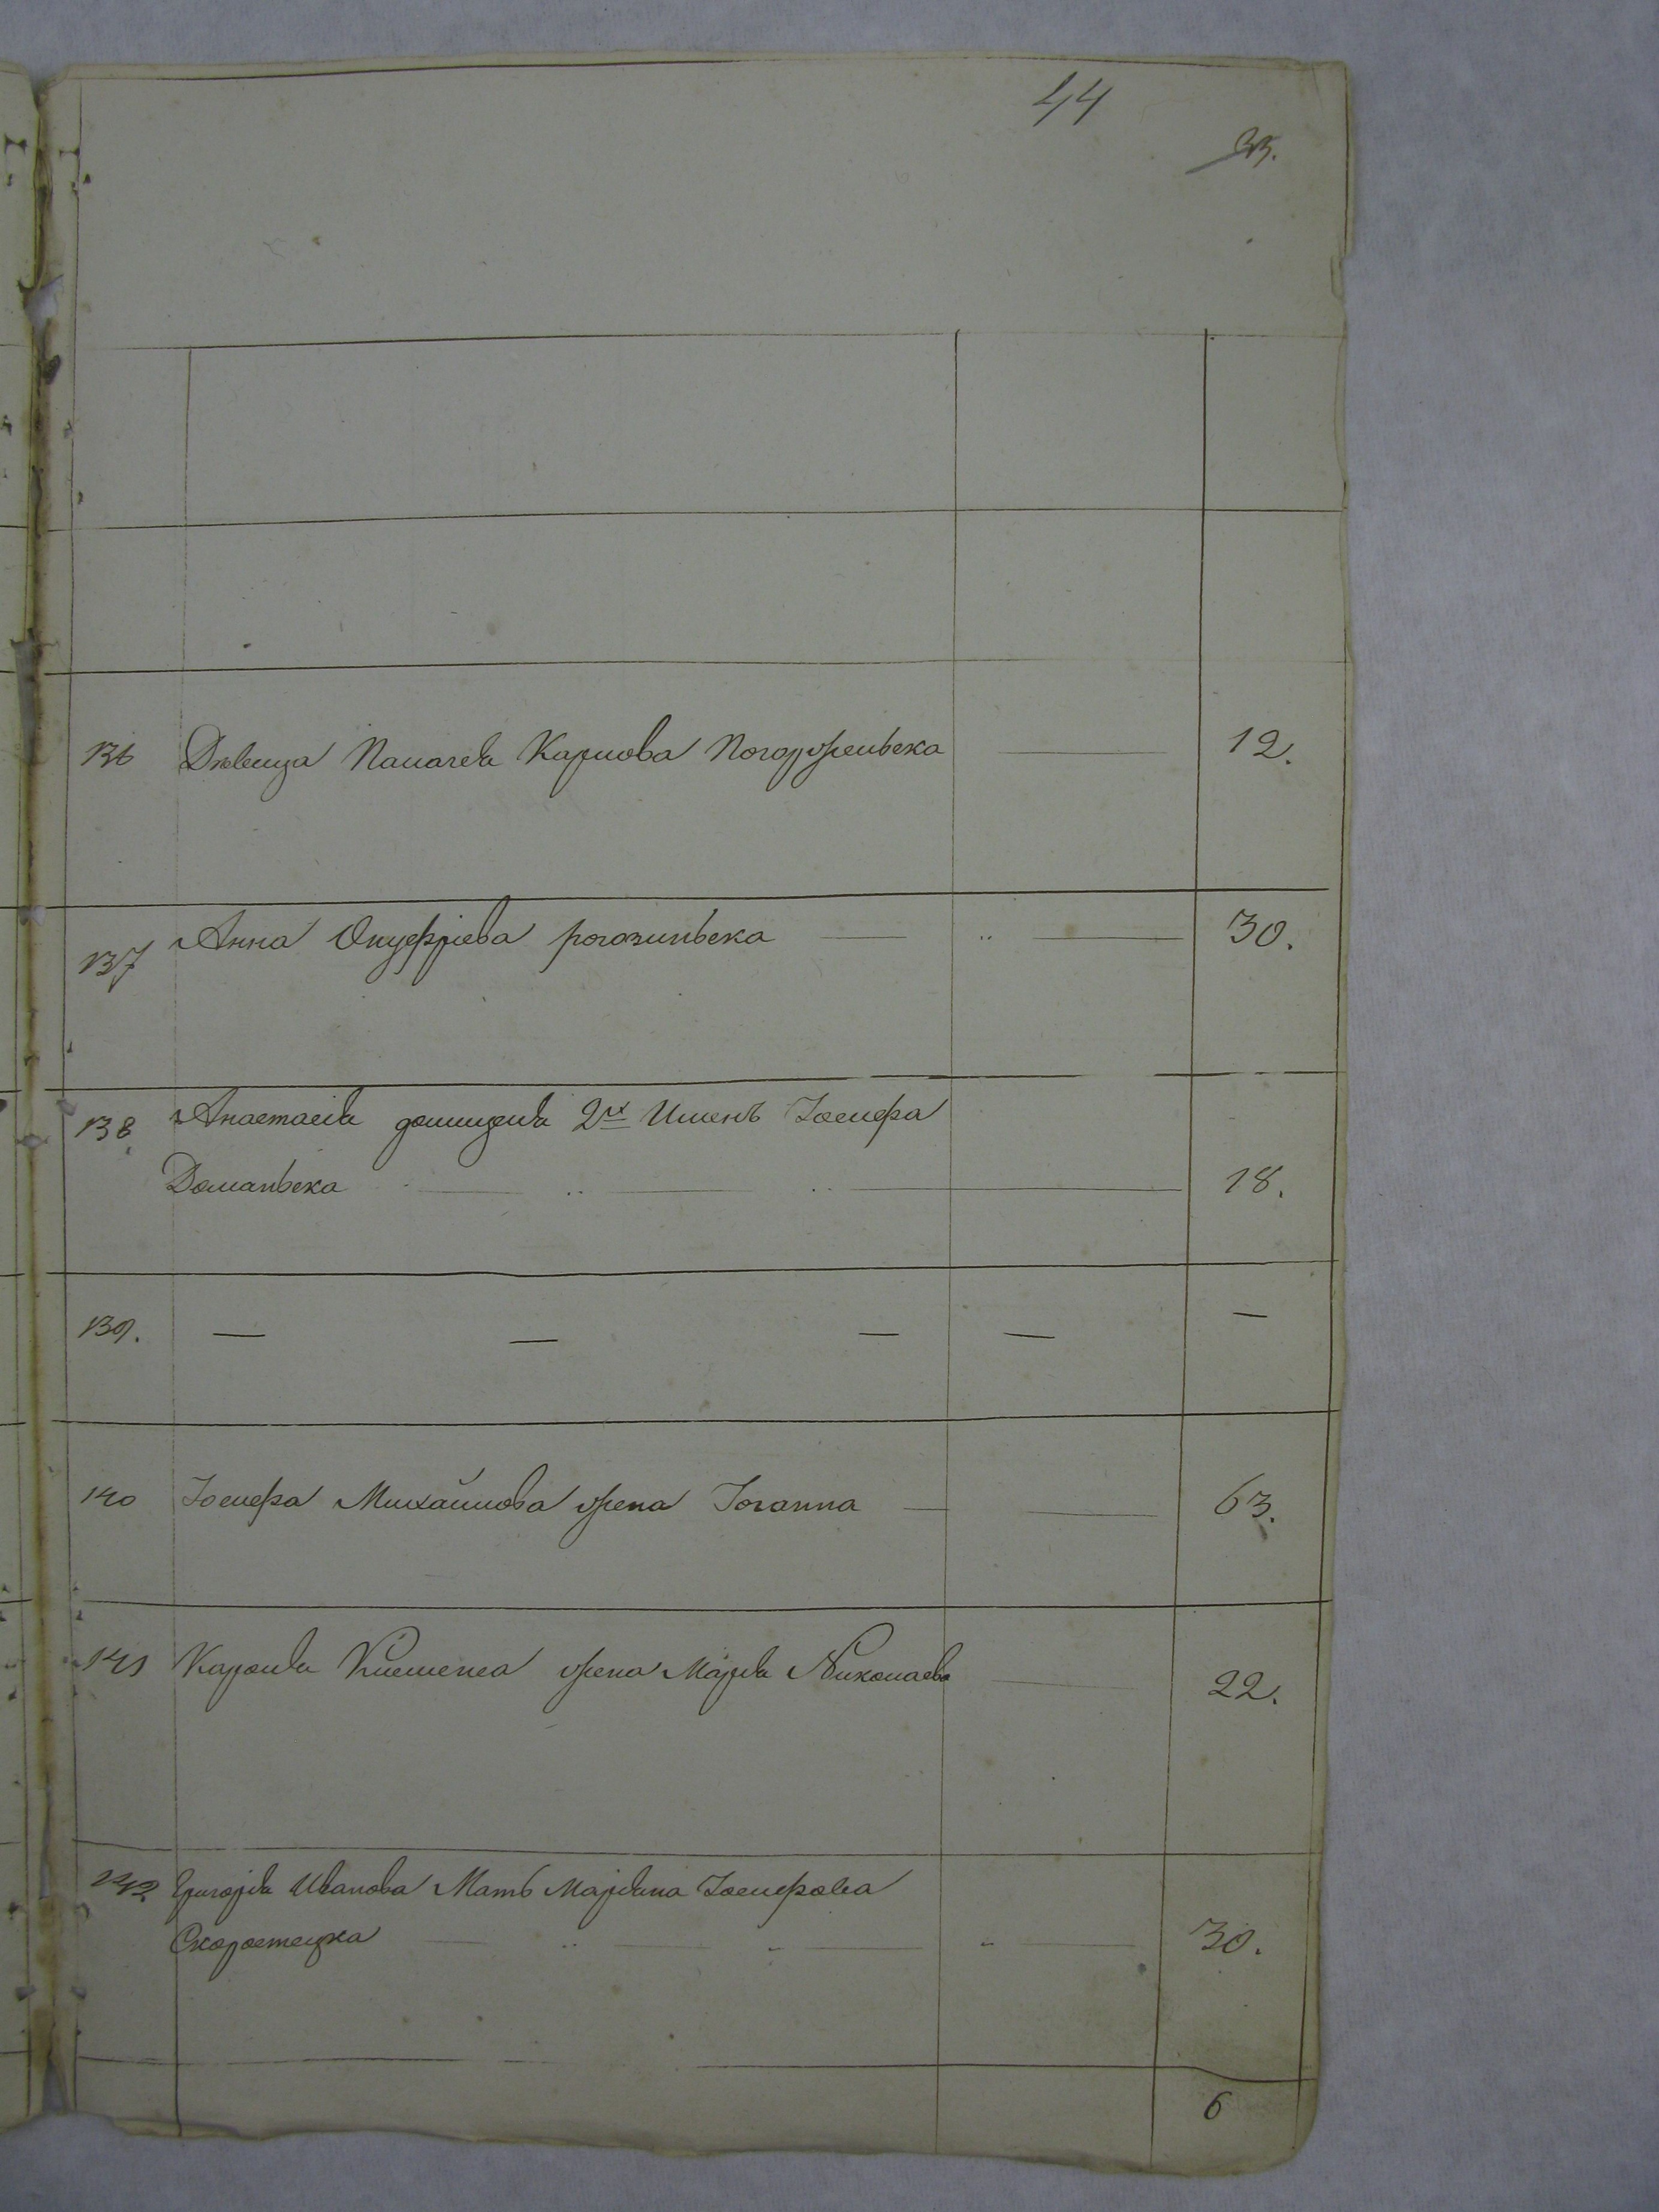 44
33.
136 Девица Пелагея Карлова Погоржельска 12.
137 Анна Онуфріева рогозинска 30.
138. Анастасія домицеля 2х Именъ Іосифа
Доманьска 18.
139. — — — — —
140 Іосифа Михайлова жена Іоганна 63.
141 Кароля Клеменса жена Марія Николаева 22.
142. Григорія Иванова Мать Маріана Іосифова
Скоростецка 30.
6